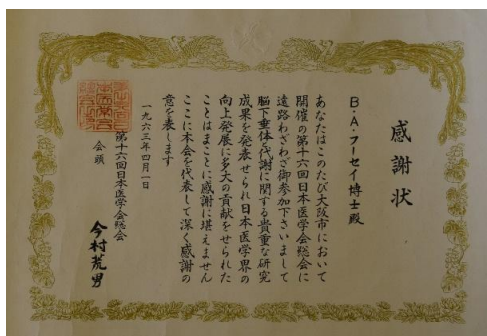 感謝状
B・A・フーセイ博士殿
あなたはこのたび大阪市において
開催の第十六回日本医学会総会に
遠路わざわざ御参加下さいまして
脳下垂体と代謝に関する貴重な研究
成果を発表せられ日本医学界の
向上発展に多大の貢献をせられた
ことはまことに感謝に堪えません
ここに本会を代表して深く感謝の
意を表します
一九六三年四月一日
第十六回日本医学会総会
会頭
今村荒男